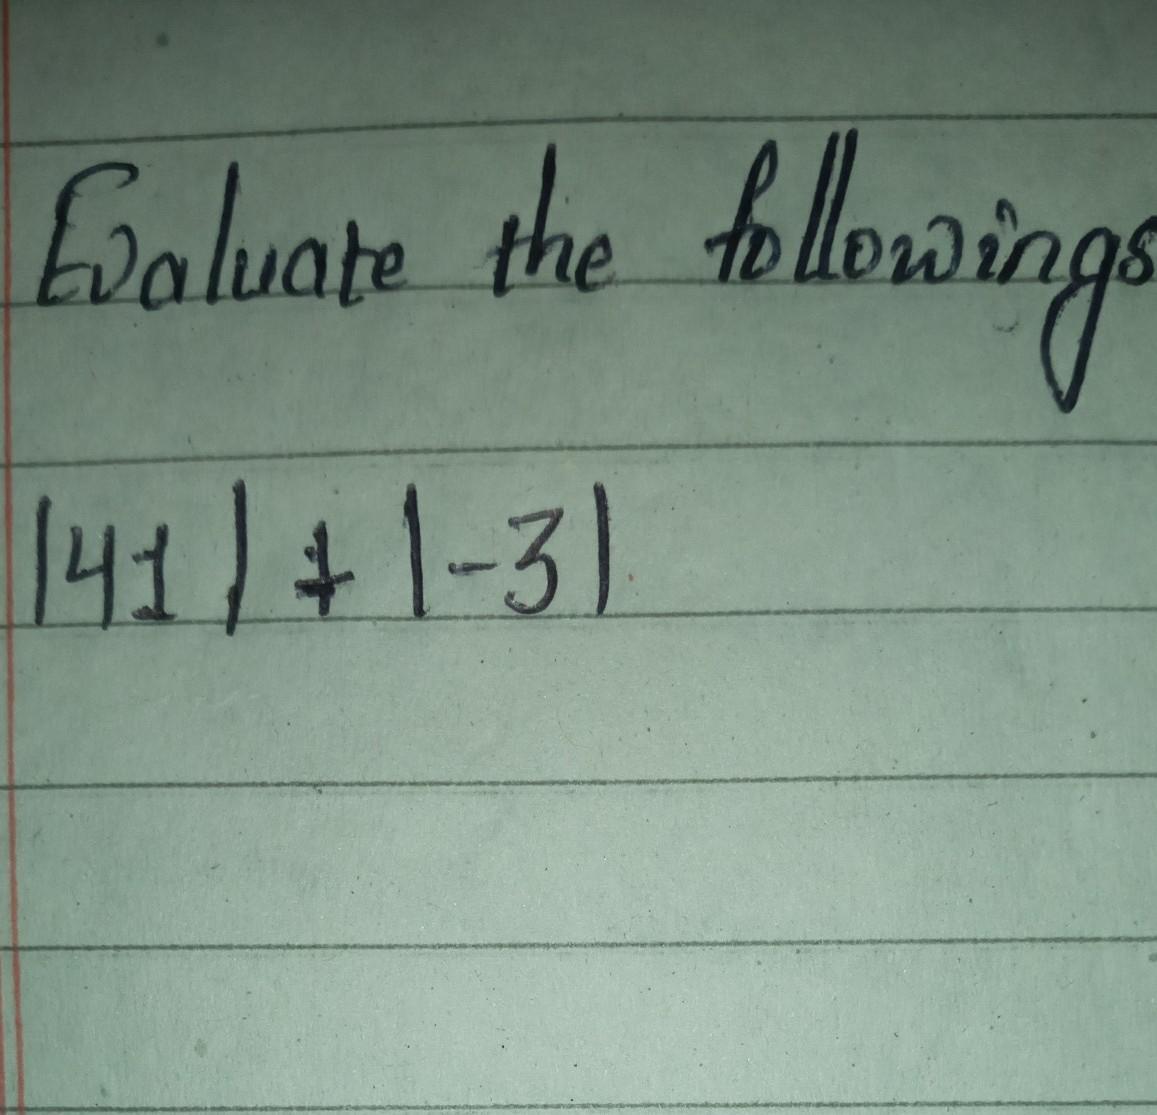 Evaluate the followings
|41| + |-3|